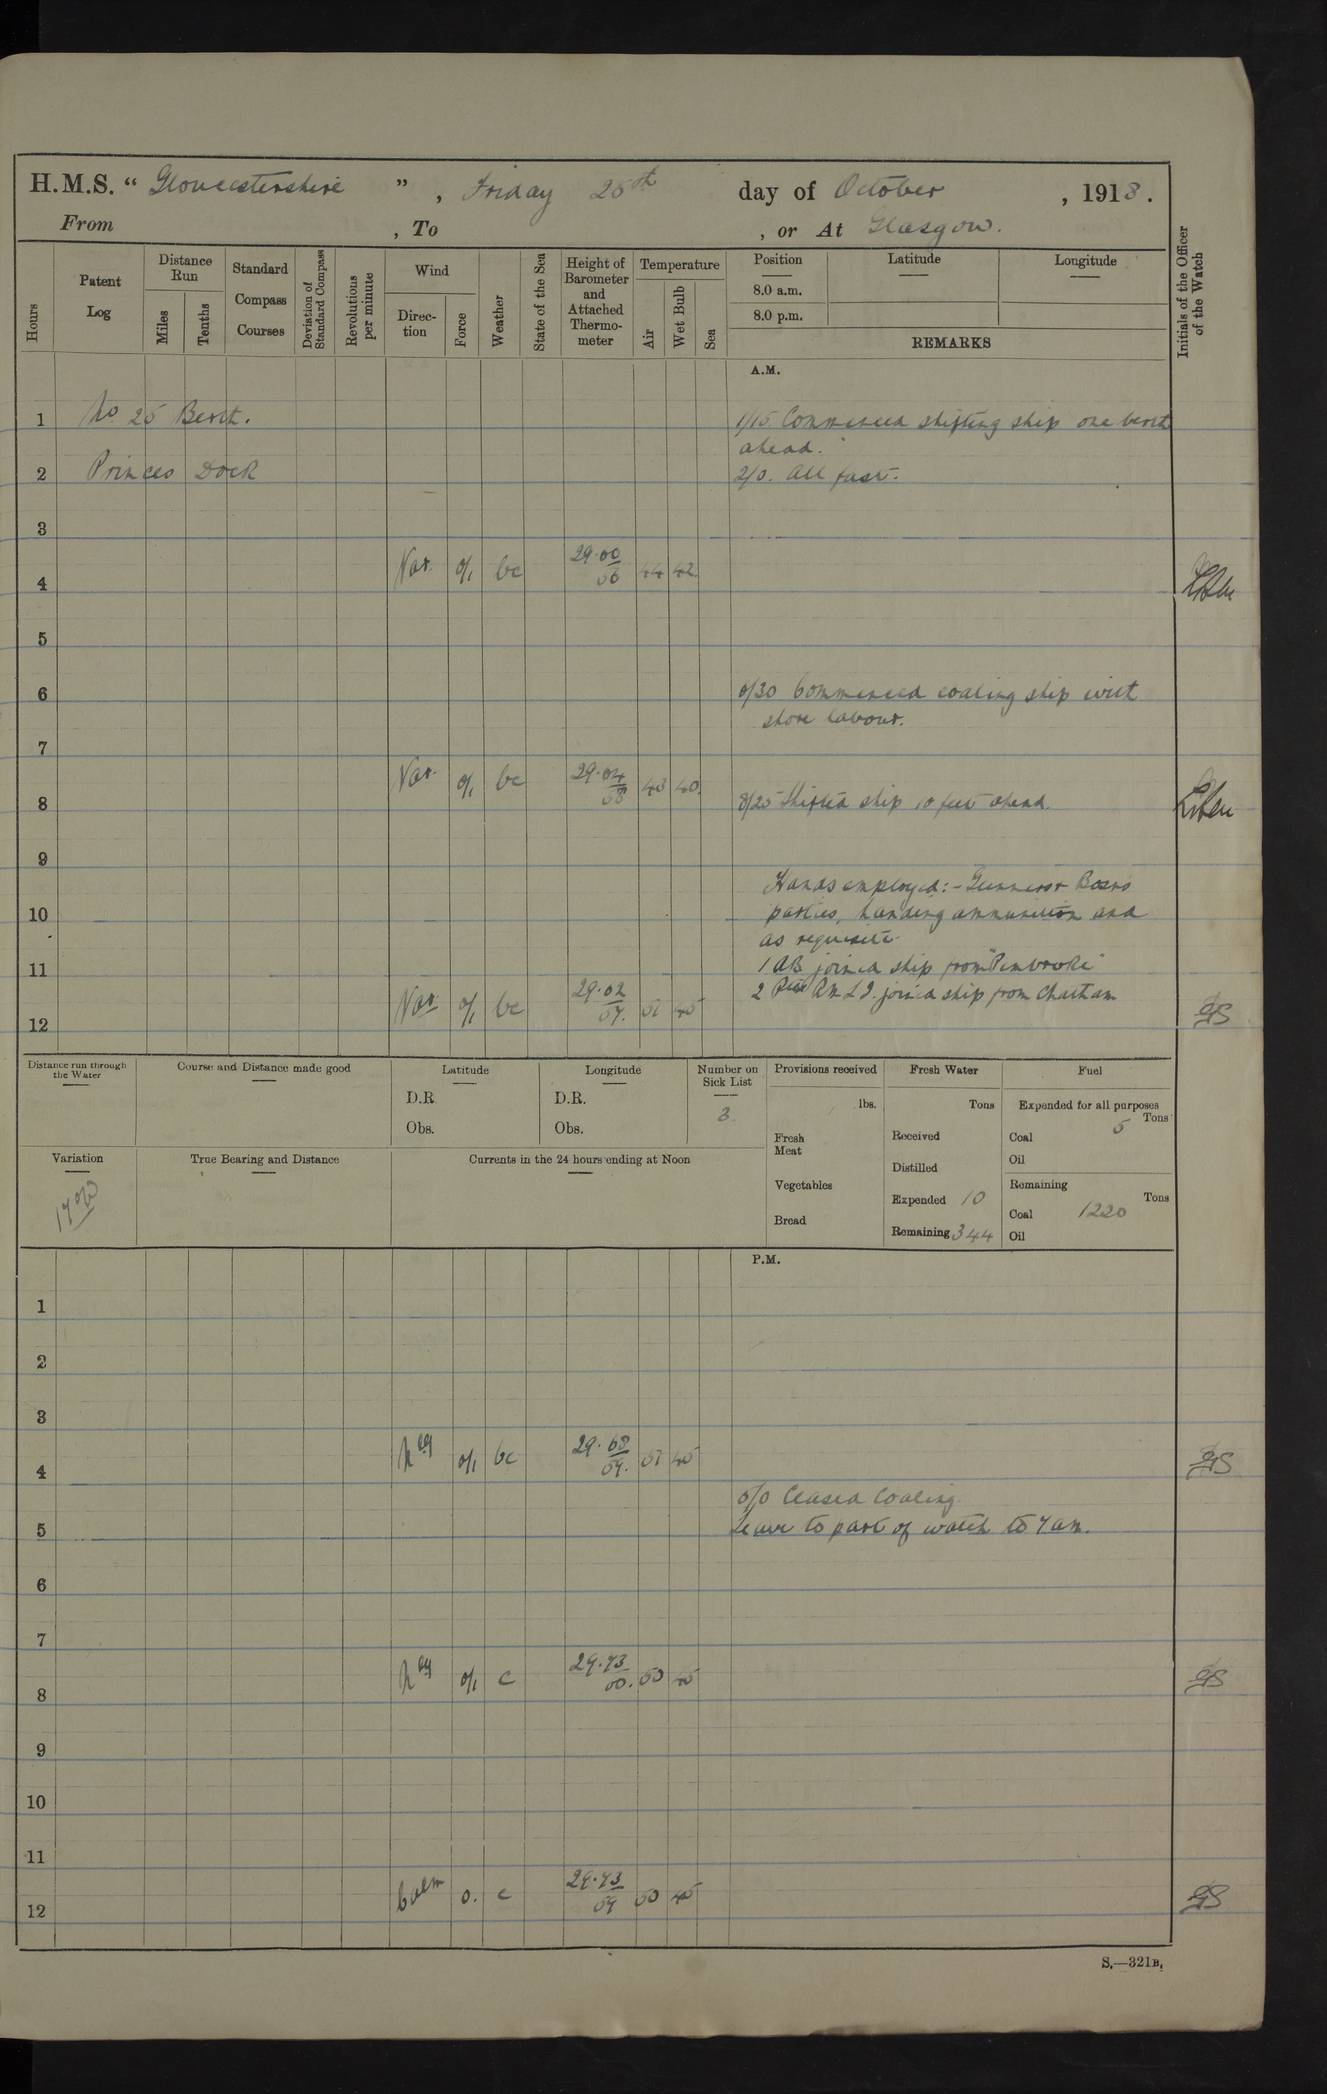 H.M.S. “ Gloucestershire ” , Friday 25th day of October , 1918.
From , To , or At Glasgow.
Hours
Patent Log
Distance Run
Miles
Tenths
Standard Compass Courses
Deviation of Standard Compass
Revolutions per minute
Wind
Direction
Force
Weather
State of the Sea
Height of Barometer and Attached Thermometer
Temperature
Air
Wet Bulb
Sea
Position
Latitude
Longitude
8.0 a.m.
8.0 p.m.
REMARKS
Initials of the Officer of the Watch
A.M.
1 No 25 Berth. 1/15 Commenced shifting ship one berth
ahead.
2 Princes Dock 2/0. All fast.
3
4 Var. 0/1 bc 29.00 56 44 42
5
6 6/30 Commenced coaling ship with
shore labour.
7
8 Var. 0/1 bc 29.04 58 43 40.
8/25 Shifted ship 10 feet ahead.
9
Hands employed:- Gunners & Bosns
10 parties, handing ammunition and
as requisite.
11 1 AB joined ship from "Pembroke"
2 R.M.L.I. joined ship from Chatham
12 Var 0/1 bc 29.02 57. 51 45 GS
Distance run through the Water
Course and Distance made good
Latitude
D.R
Obs.
Longitude
D.R.
Obs.
Number on Sick List
3
Provisions received
lbs.
Fresh Meat
Vegetables
Bread
Fresh Water
Tons
Received
Distilled
Expended 10
Remaining 344
Fuel
Expended for all purposes
Tons
Coal 5
Oil
Remaining
Tons
Coal 1220
Oil
Variation
True Bearing and Distance
Currents in the 24 hours ending at Noon
P.M.
1
2
3
4 Nly 0/1 bc 29.68 59. 51 45 GS
5/0 Ceased Coaling.
5 Leave to part of watch to 7 am.
6
7
8 Nly 0/1 c 29.73 60. 50 45 GS
9
10
11
12 Calm 0. c 29.73 59 50 45 GS
S.—321B.